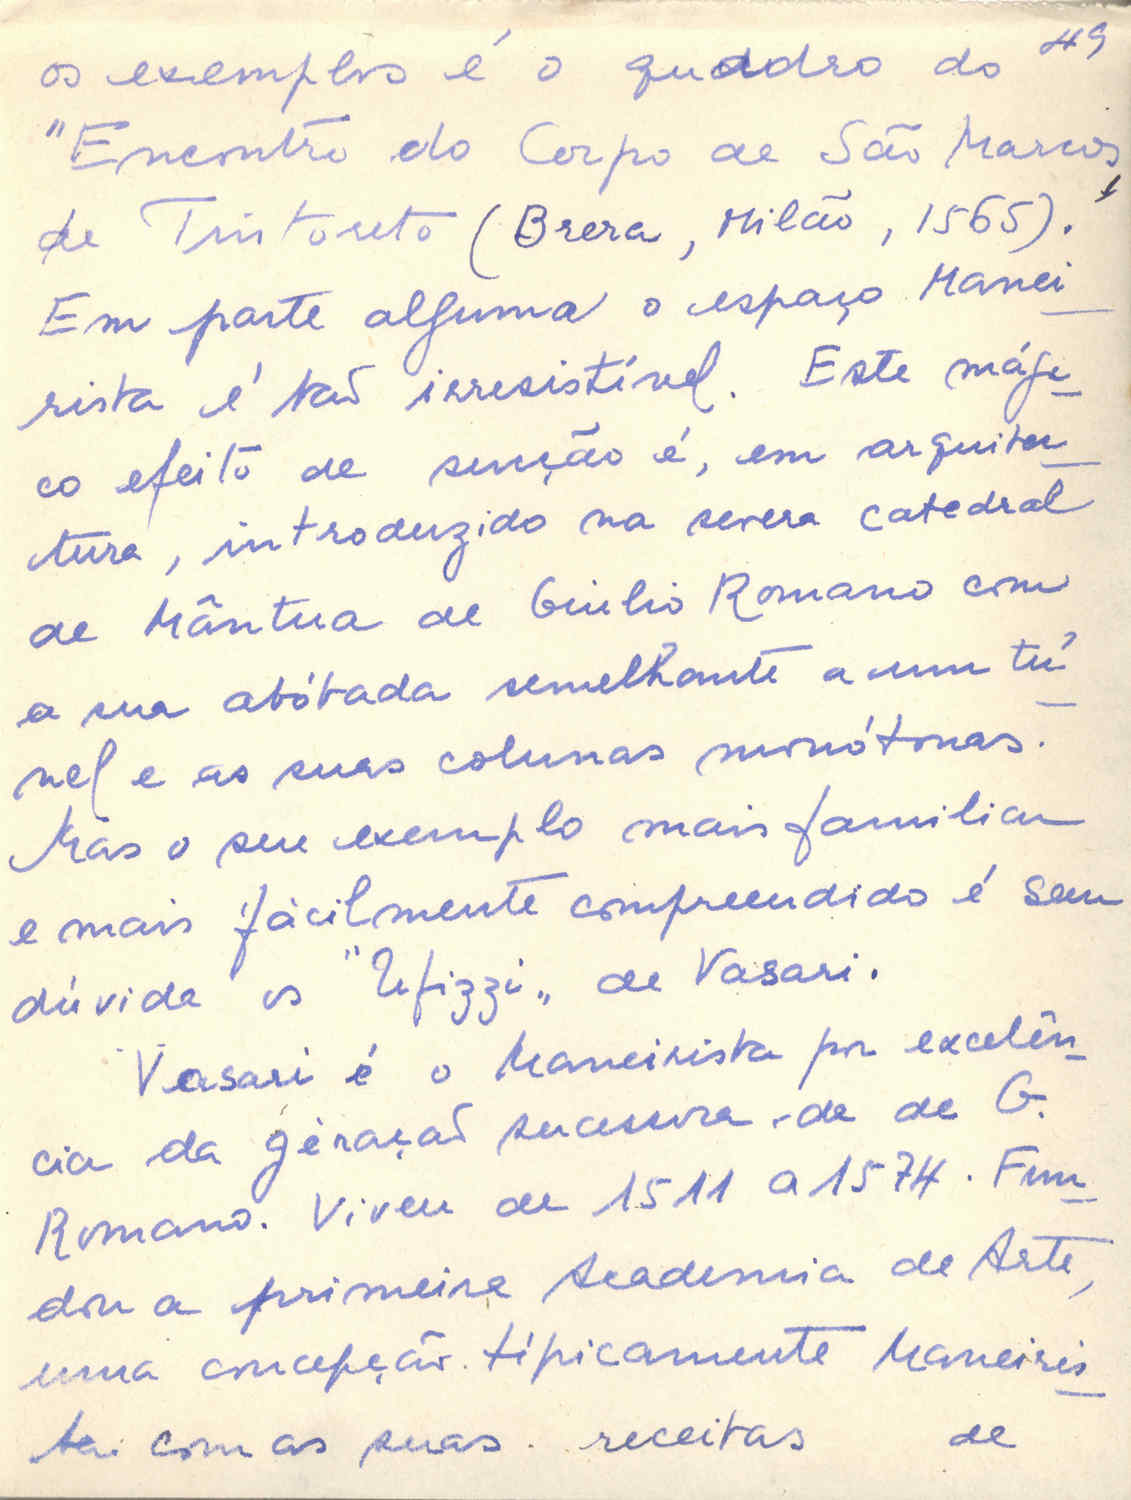 49
os exemplos é o quadro do
"Encontro do Corpo de São Marcos"
de Tintoreto (Brera, Milão, 1565).
Em parte alguma o espaço Manei_
rista é taõ irresistível. Este mági_
co efeito de sucção é, em arquitec_
tura, introduzido na severa catedral
de Mântua de Giulio Romano com
a sua abóbada semelhante a um tú_
nel e as suas colunas monótonas.
Mas o seu exemplo mais familiar
e mais fàcilmente compreendido é sem
dúvida os "Ufizzi" de Vasari.
Vasari é o Maneirista por excelên_
cia da geraçaõ sucessora da de G.
Romano. Viveu de 1511 a 1574. Fun_
dou a primeira Academia de Arte,
uma concepção tipicamente Maneiris_
ta com as suas receitas de